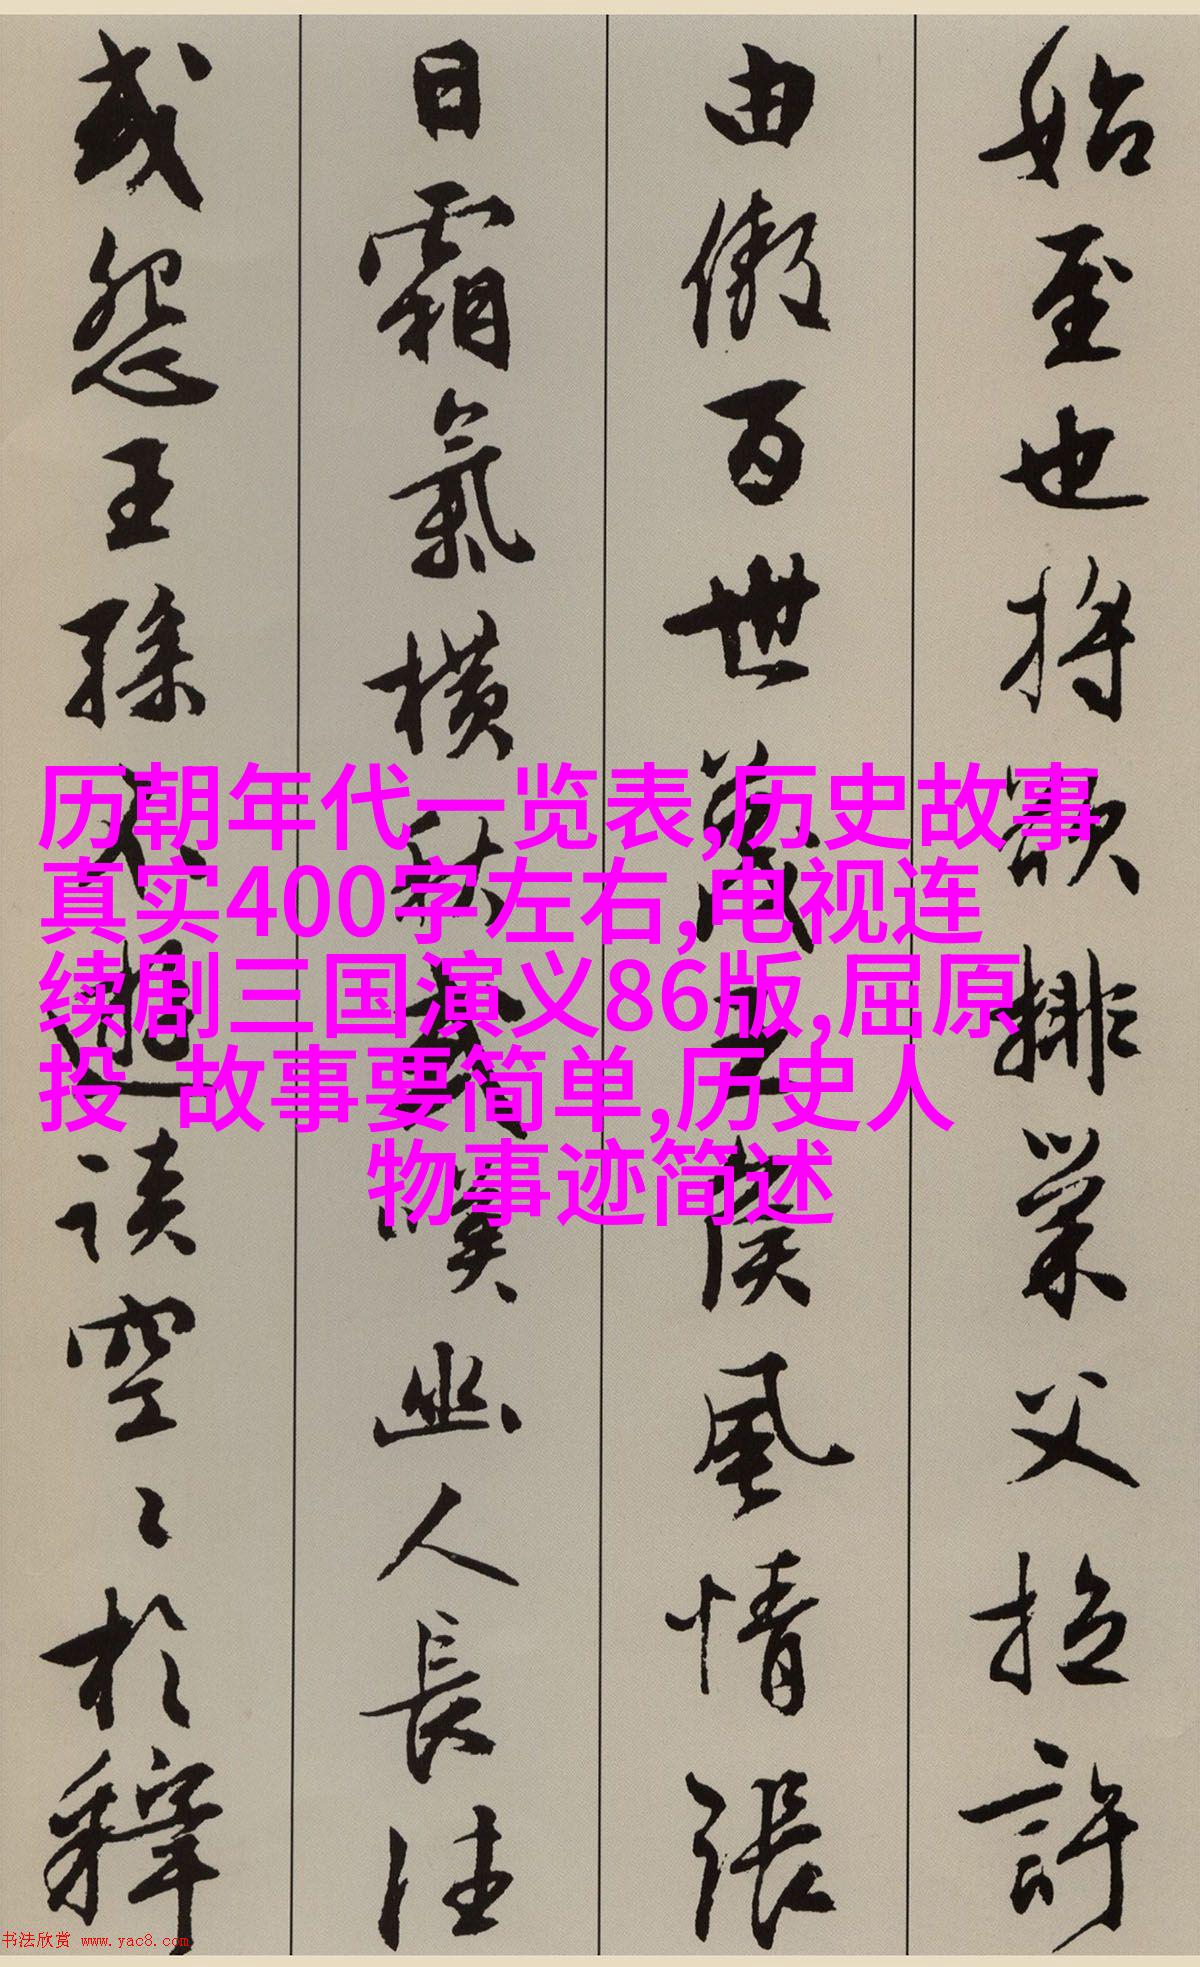 始至也將欲排巢父拉許
由傲百世蔑王侯風情張
日霜氣橫秋或嘆幽人長往
或怨王孫不遊談空〻於釋
历朝年代一览表,历史故事
真实400字左右,电视连
续剧三国演义86版,屈原
投 故事要简单,历史人
物事迹简述
书法欣赏 www.yac8.com